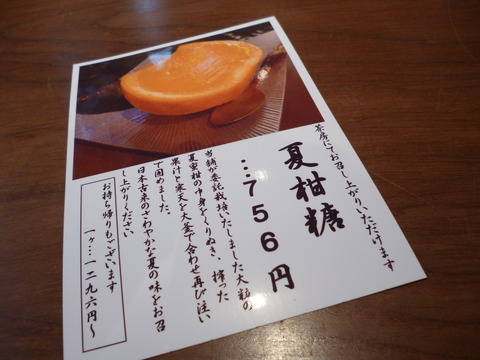 茶房にてお召し上がりいただけます
夏柑糖
…７５６円
当舗が委託栽培いたしました大粒の
夏蜜柑の中身をくりぬき、搾った
果汁と寒天を大釜で合わせ再び注い
で固めました。
日本古来のさわやかな夏の味をお召
し上がりください
お持ち帰りもございます
一ヶ…一二九六円～